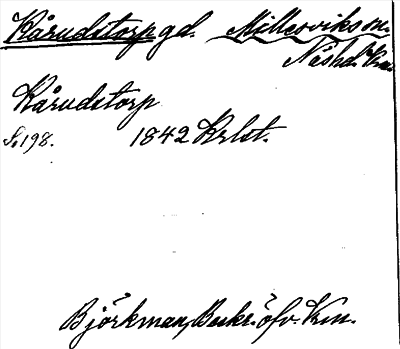 Kårudstorp gd. Millesviks sn.
Näshd. Vrm
Kårudstorp
S. 198. 1842 Krlst.
Björkman, Beskr. öfv. Vrm.